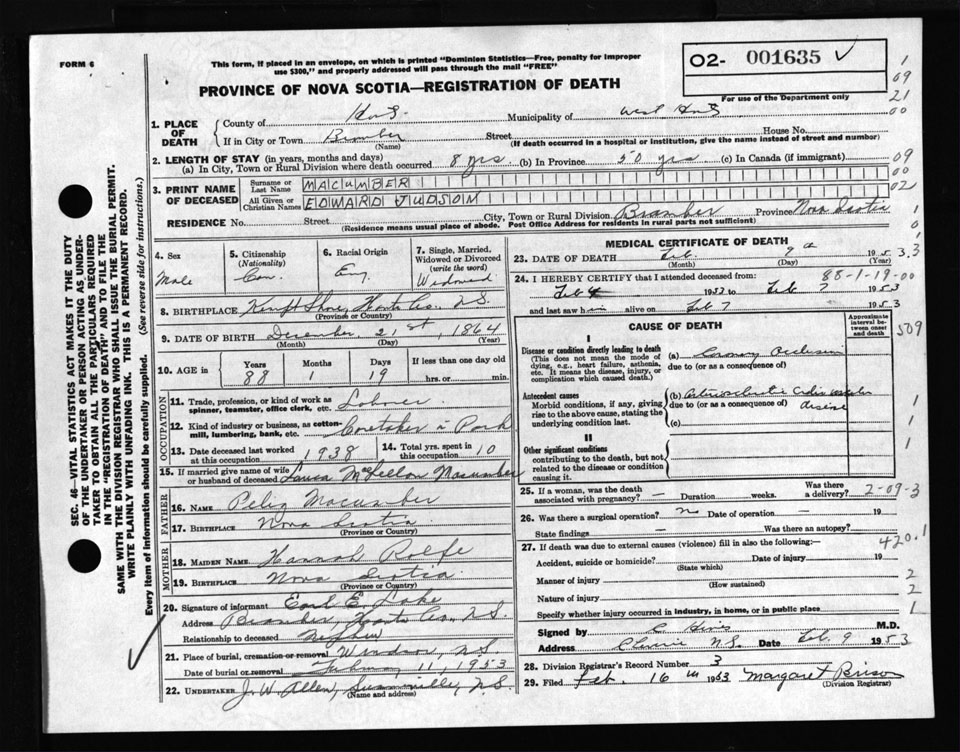 FORM 6
This form, if placed in an envelope, on which is printed "Dominion Statistics—Free, penalty for improper
use $300," and properly addressed will pass through the mail "FREE"
O2- 001635
For use of the Department only
PROVINCE OF NOVA SCOTIA—REGISTRATION OF DEATH
1. PLACE OF DEATH
County of Municipality of West
If in City or Town Bramber Street House No.
(Name) (If death occurred in a hospital or institution, give the name instead of street and number)
2. LENGTH OF STAY (in years, months and days)
(a) In City, Town or Rural Division where death occurred 8 yrs (b) In Province 50 yrs (c) In Canada (if immigrant)
3. PRINT NAME OF DECEASED
Surname or Last Name MACUMBER
All Given or Christian Names EDWARD JUDSON
RESIDENCE No. Street City, Town or Rural Division Bramber Province Nova Scotia
(Residence means usual place of abode. Post Office Address for residents in rural parts not sufficient)
4. Sex Male
5. Citizenship (Nationality) Can.
6. Racial Origin Eng.
7. Single, Married, Widowed or Divorced (write the word) Widowed
8. BIRTHPLACE Kempt Shore, Hants Co. N.S.
(Province or Country)
9. DATE OF BIRTH December 21st, 1864
(Month) (Day) (Year)
10. AGE in Years Months Days If less than one day old
88 1 19 hrs. or min.
OCCUPATION
11. Trade, profession, or kind of work as spinner, teamster, office clerk, etc. Labourer
12. Kind of industry or business, as cotton-mill, lumbering, bank, etc. Caretaker in Park
13. Date deceased last worked at this occupation 1938
14. Total yrs. spent in this occupation 10
15. If married give name of wife or husband of deceased Laura Macumber
FATHER
16. NAME Macumber
17. BIRTHPLACE Nova Scotia
(Province or Country)
MOTHER
18. MAIDEN NAME Hannah Rolfe
19. BIRTHPLACE Nova Scotia
(Province or Country)
20. Signature of informant Earl E. Lake
Address Bramber, Hants Co., N.S.
Relationship to deceased Nephew
21. Place of burial, cremation or removal Windsor, N.S.
Date of burial or removal February 11, 1953
22. UNDERTAKER J. W. Allen, Summerville, N.S.
(Name and address)
MEDICAL CERTIFICATE OF DEATH
23. DATE OF DEATH Feb. 9th 1953
(Month) (Day) (Year)
24. I HEREBY CERTIFY that I attended deceased from: 88-1-19-00
Feb 4 1953 to Feb 7 1953
I last saw him alive on Feb 7 1953
CAUSE OF DEATH
Approximate interval between onset and death
I
Disease or condition directly leading to death (a) Coronary Occlusion
(This does not mean the mode of dying, e.g., heart failure, asthenia, etc. It means the disease, injury, or complication which caused death.)
due to (or as a consequence of)
Antecedent causes
Morbid conditions, if any, giving rise to the above cause, stating the underlying condition last.
(b) disease
due to (or as a consequence of)
(c)
II
Other significant conditions contributing to the death, but not related to the disease or condition causing it.
25. If a woman, was the death associated with pregnancy? — Duration weeks. Was there a delivery?
26. Was there a surgical operation? no Date of operation — 19
State findings Was there an autopsy?
27. If death was due to external causes (violence) fill in also the following:—
Accident, suicide or homicide? Date of injury 19
(State which)
Manner of injury
(How sustained)
Nature of injury
Specify whether injury occurred in industry, in home, or in public place
Signed by M.D.
Address N.S. Date Feb. 9 1953
28. Division Registrar's Record Number 3
29. Filed Feb. 16th 1953 Margaret
(Division Registrar)
1
09
21
00
09
00
02
509
2-09-3
420.1
2
2
1
SEC. 46—VITAL STATISTICS ACT MAKES IT THE DUTY
OF THE UNDERTAKER OR PERSON ACTING AS UNDER-
TAKER TO OBTAIN ALL THE PARTICULARS REQUIRED
IN THE "REGISTRATION OF DEATH" AND TO FILE THE
SAME WITH THE DIVISION REGISTRAR WHO SHALL ISSUE THE BURIAL PERMIT.
WRITE PLAINLY WITH UNFADING INK. THIS IS A PERMANENT RECORD.
Every item of information should be carefully supplied. (See reverse side for instructions.)